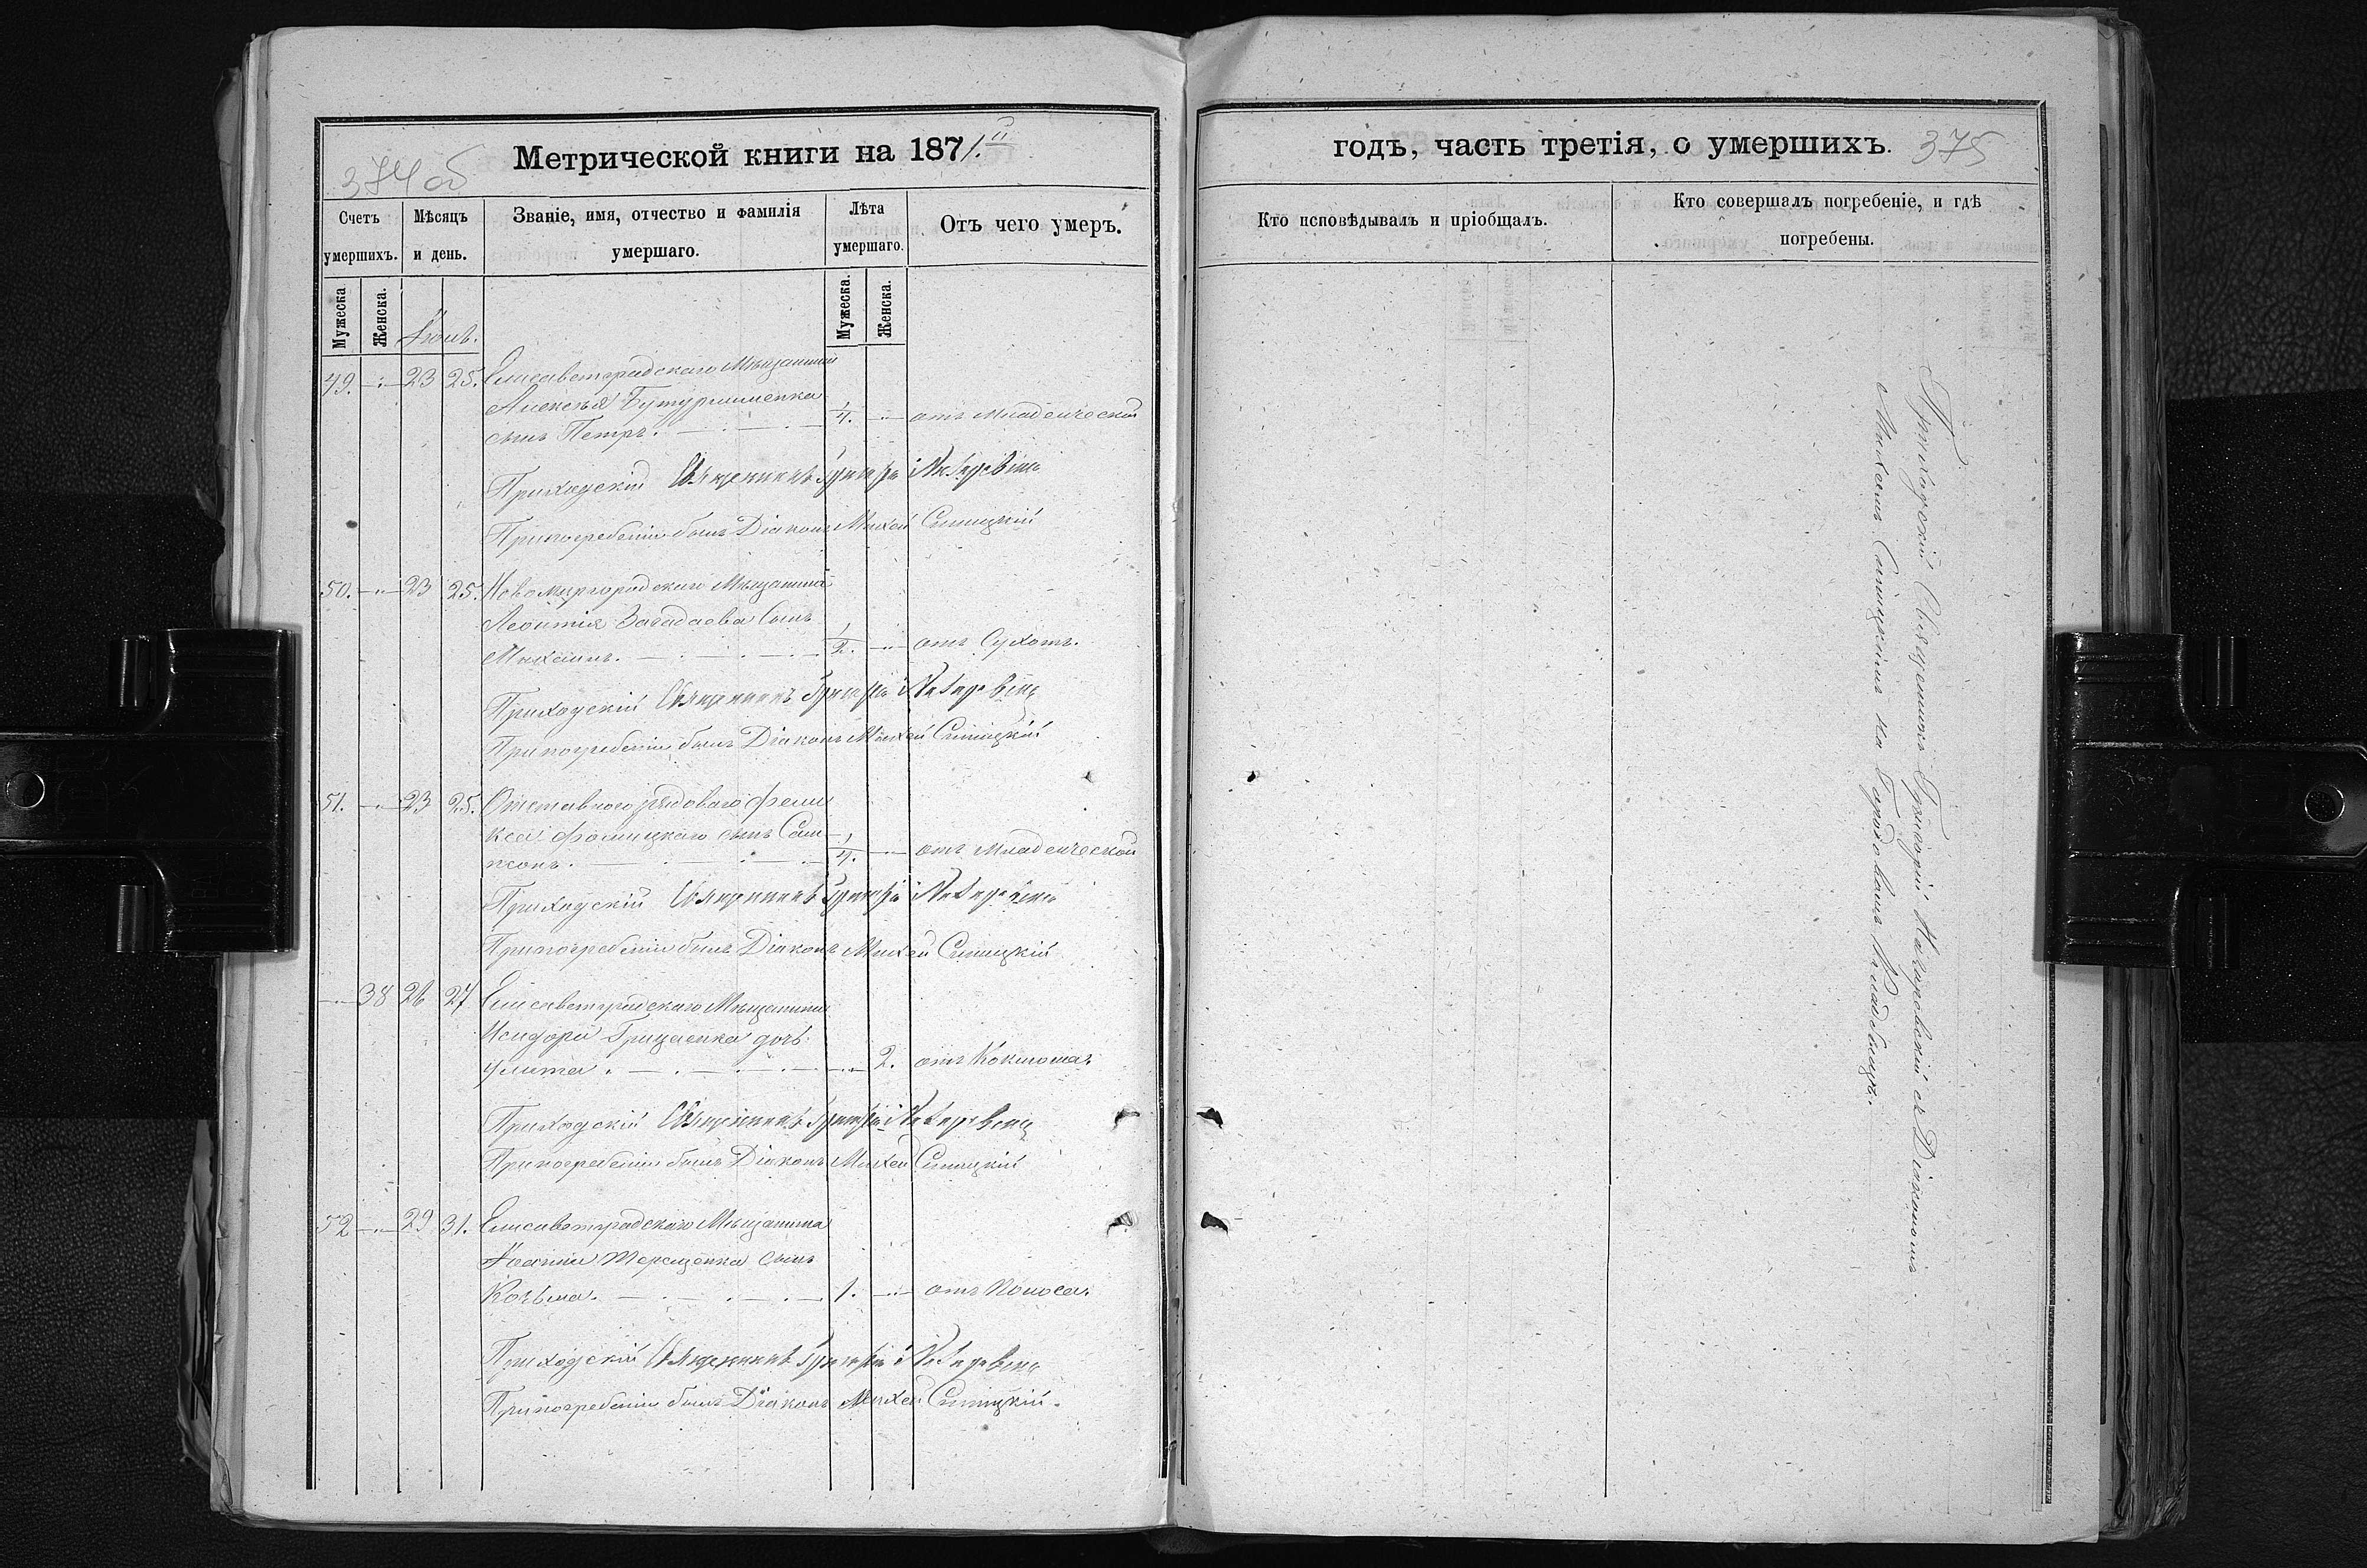 374 об
Метрической книги на 1871.й
Счетъ умершихъ.
Мѣсяцъ и день.
Званіе, имя, отчество и фамилія умершаго.
Лѣта умершаго.
Отъ чего умеръ.
Мужеска
Женска.
Мужеска.
Женска.
49. 23 25. Елисаветградскаго Мѣщанина
Алексѣя
сынъ Петръ. 1/4. отъ младенческой
Приходскій Священникъ Григорій
При погребеніи былъ Діаконъ Михей Синицкій
50. 23 25. Новомиргородскаго Мѣщанина
Леонтія Загадаева сынъ
Михаилъ. 1/2. отъ Сухотъ.
Приходскій Священникъ Григорій
При погребеніи былъ Діаконъ Михей Синицкій
51. 23 25. Отставного рядоваго Фели
кса сынъ Сам
псонъ. 1/4. отъ младенческой
Приходскій Священникъ Григорій
При погребеніи былъ Діаконъ Михей Синицкій
38 26 27 Елисаветградскаго Мѣщанина
Исидора Грицаенка дочь
Улита. 2. отъ Коклюша.
Приходскій Священникъ Григорій
При погребеніи былъ Діаконъ Михей Синицкій
52 29 31. Елисаветградскаго Мѣщанина
Іоанна Терещенка сынъ
Козьма. 1. отъ Поноса.
Приходскій Священникъ Григорій
При погребеніи былъ Діаконъ Михей Синицкій.
годъ, часть третія, о умершихъ. 375
Кто исповѣдывалъ и пріобщалъ.
Кто совершалъ погребеніе, и гдѣ погребены.
Приходскій Священникъ Григорій съ Діакономъ
Михеемъ Синицкимъ на Городовомъ Кладбищѣ.